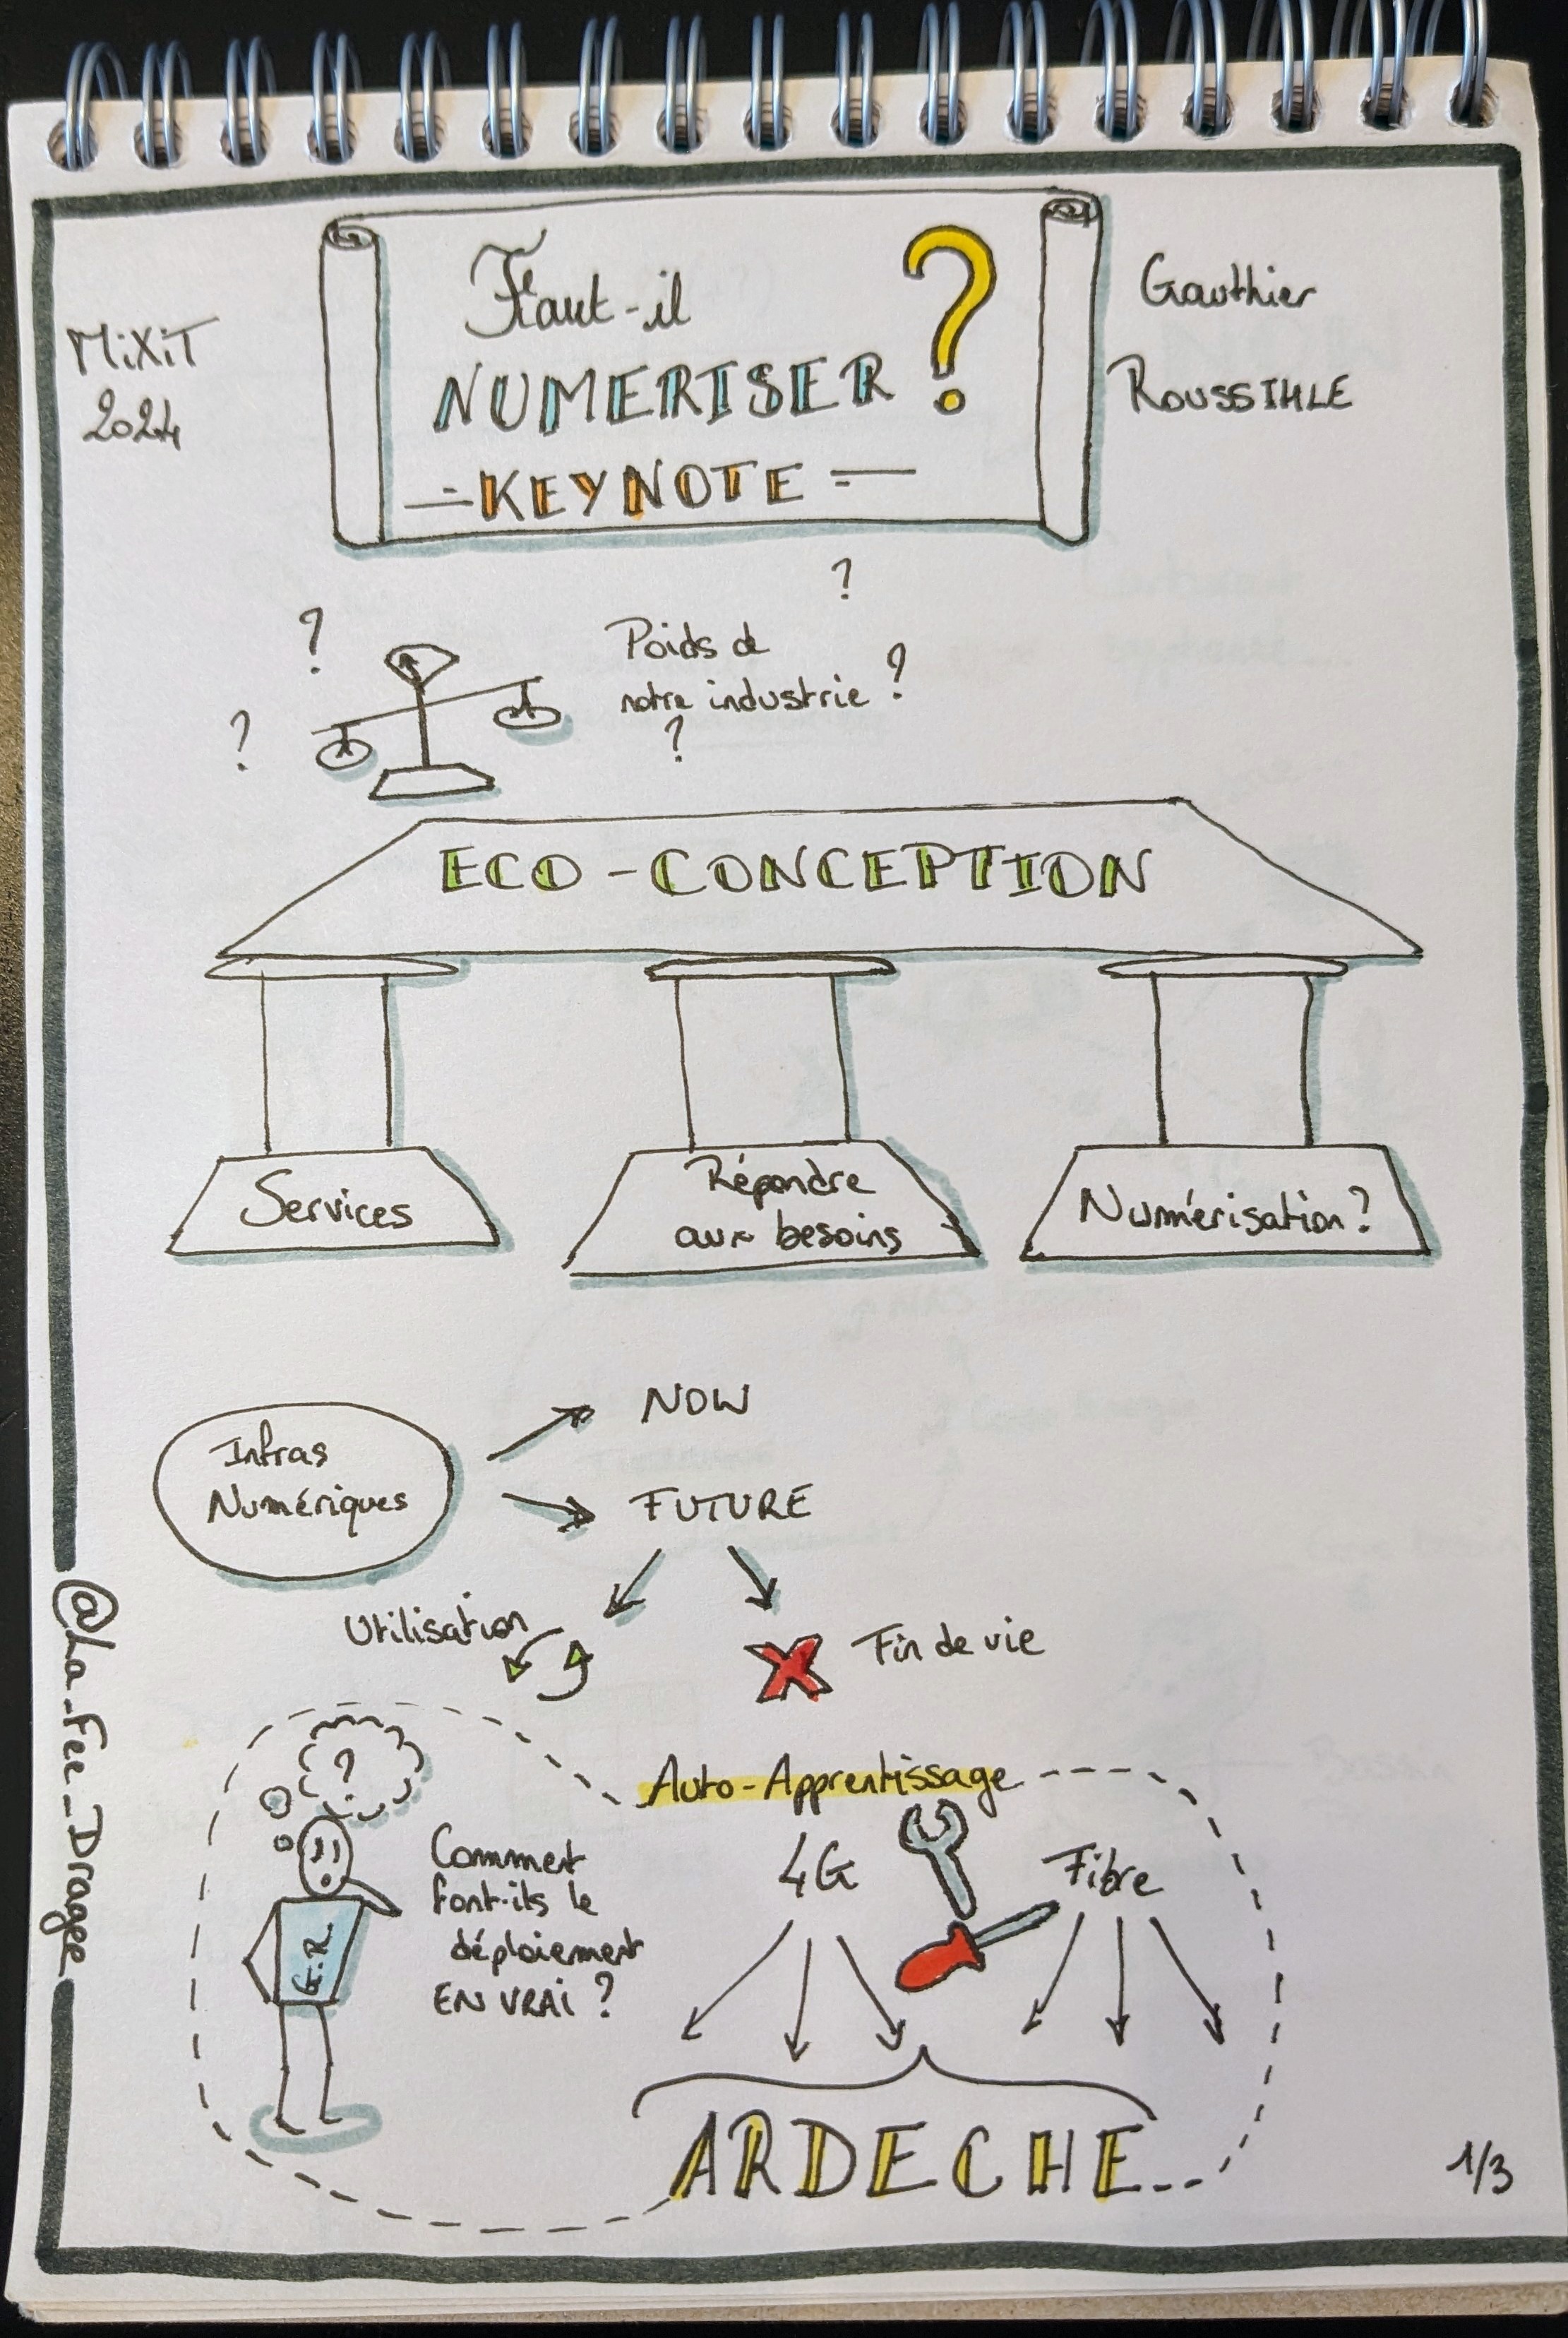 MiXiT
2024
Faut-il
NUMERISER ?
-KEYNOTE-
Gauthier
ROUSSIHLE
?
?
Poids de
notre industrie ?
?
?
ECO-CONCEPTION
Services
Répondre
aux besoins
Numérisation?
Infras
Numériques
NOW
FUTURE
Utilisation
Fin de vie
@La_Fee_Dragee
?
Auto-Apprentissage
Comment
font-ils le
déploiement
EN VRAI ?
G.R
4G
Fibre
ARDECHE
1/3